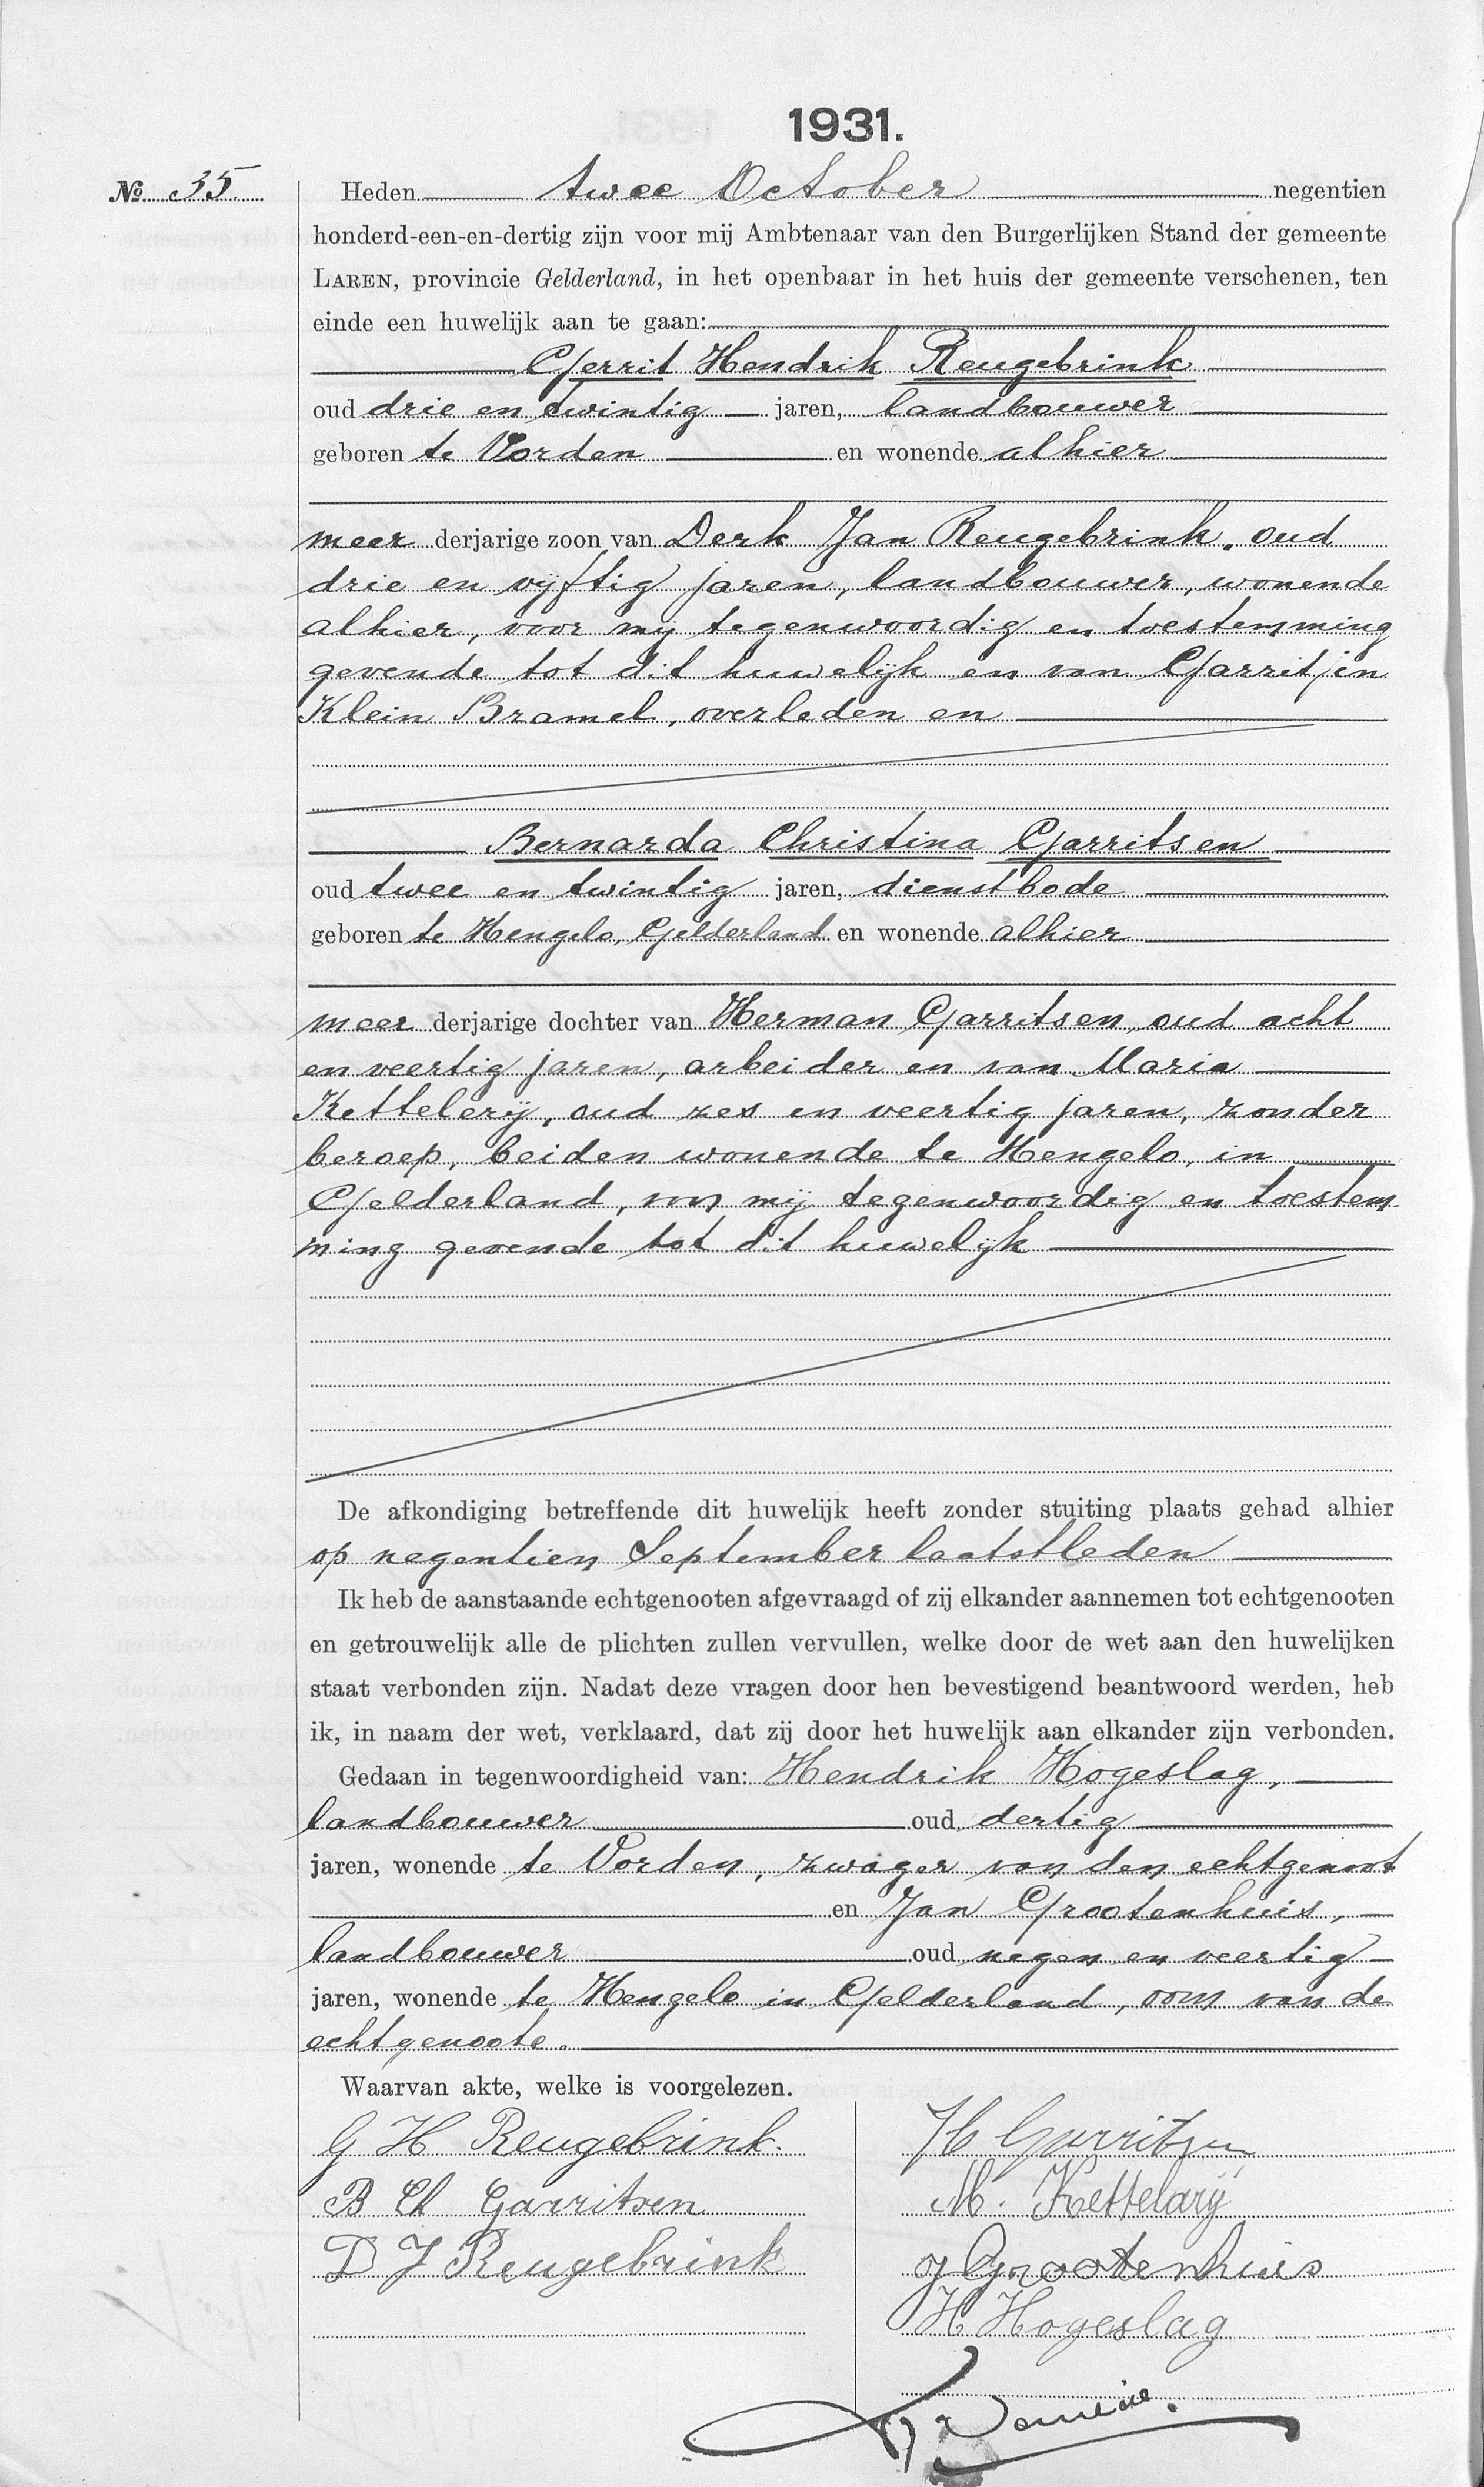 1931.
No. 35. Heden twee October negentien
honderd-een-en-dertig zijn voor mij Ambtenaar van den Burgerlijken Stand der gemeente
LAREN, provincie Gelderland, in het openbaar in het huis der gemeente verschenen, ten
einde een huwelijk aan te gaan:
Gerrit Hendrik Reugebrink
oud drie en twintig jaren, landbouwer
geboren te Vorden en wonende alhier
meer derjarige zoon van Derk Jan Reugebrink, oud
drie en vijftig jaren, landbouwer, wonende
alhier, voor mij tegenwoordig en toestemming
gevende tot dit huwelijk en van Garritjen
Klein Bramel, overleden en
Bernarda Christina Garritsen
oud twee en twintig jaren, dienstbode
geboren te Hengelo, Gelderland en wonende alhier
meer derjarige dochter van Herman Garritsen, oud acht
en veertig jaren, arbeider en van Maria
Kettelerij, oud zes en veertig jaren, zonder
beroep, beiden wonende te Hengelo, in
Gelderland, voor mij tegenwoordig en toestem-
ming gevende tot dit huwelijk
De afkondiging betreffende dit huwelijk heeft zonder stuiting plaats gehad alhier
op negentien September laatstleden
Ik heb de aanstaande echtgenooten afgevraagd of zij elkander aannemen tot echtgenooten
en getrouwelijk alle de plichten zullen vervullen, welke door de wet aan den huwelijken
staat verbonden zijn. Nadat deze vragen door hen bevestigend beantwoord werden, heb
ik, in naam der wet, verklaard, dat zij door het huwelijk aan elkander zijn verbonden.
Gedaan in tegenwoordigheid van: Hendrik Hogeslag,
landbouwer oud dertig
jaren, wonende te Vorden, zwager van den echtgenoot
en Jan Grootenhuis,
landbouwer oud negen en veertig
jaren, wonende te Hengelo in Gelderland, oom van de
echtgenoote.
Waarvan akte, welke is voorgelezen.
G H Reugebrink. H Garritsen
B Ch Garritsen M. Kettelarij
D J Reugebrink J Grootenhuis
H Hogeslag